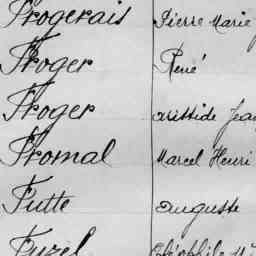 Frogerais Pierre Marie
Froger René
Froger Aristide Jean
Fromal Marcel Henri
Futte Auguste
Fuzel Théophile M